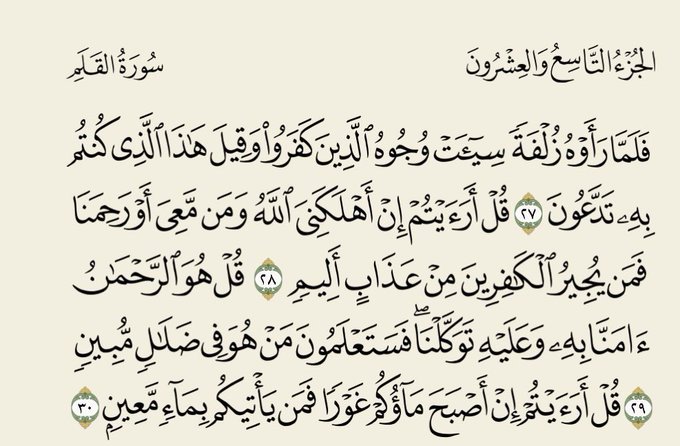 الجُزْءُ التَّاسِعُ وَالعِشْرُونَ
سُورَةُ القَلَمِ
فَلَمَّا رَأَوْهُ زُلْفَةً سِيٓـَٔتْ وُجُوهُ ٱلَّذِينَ كَفَرُوا۟ وَقِيلَ هَٰذَا ٱلَّذِى كُنتُم
بِهِۦ تَدَّعُونَ ٢٧ قُلْ أَرَءَيْتُمْ إِنْ أَهْلَكَنِىَ ٱللَّهُ وَمَن مَّعِىَ أَوْ رَحِمَنَا
فَمَن يُجِيرُ ٱلْكَٰفِرِينَ مِنْ عَذَابٍ أَلِيمٍ ٢٨ قُلْ هُوَ ٱلرَّحْمَٰنُ
ءَامَنَّا بِهِۦ وَعَلَيْهِ تَوَكَّلْنَا ۖ فَسَتَعْلَمُونَ مَنْ هُوَ فِى ضَلَٰلٍ مُّبِينٍ
٢٩ قُلْ أَرَءَيْتُمْ إِنْ أَصْبَحَ مَآؤُكُمْ غَوْرًا فَمَن يَأْتِيكُم بِمَآءٍ مَّعِينٍۭ ٣٠